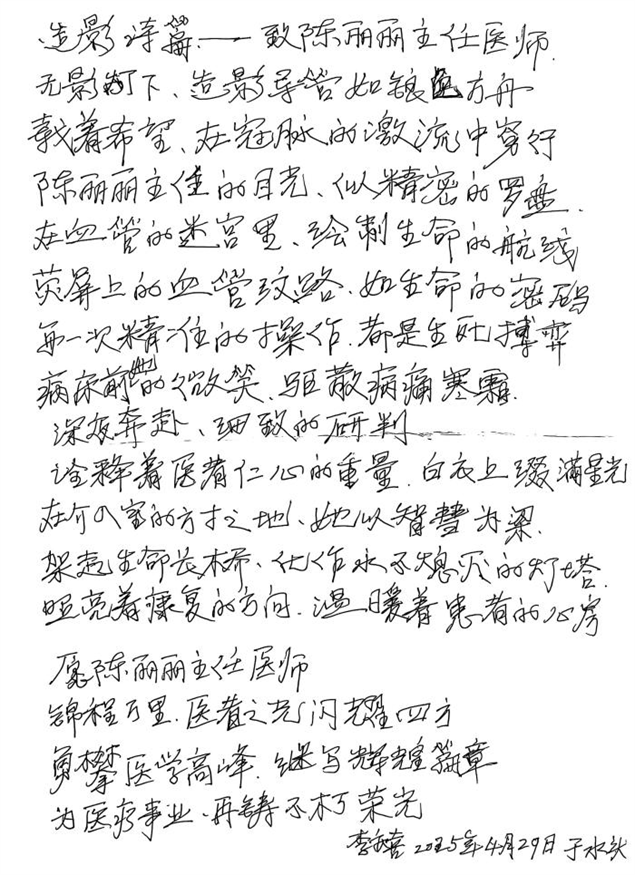 造影诗篇——致陈丽丽主任医师
无影灯下、造影导管如银色方舟
载着希望、在冠脉的激流中穿行
陈丽丽主任的目光、似精密的罗盘.
在血管的迷宫里、绘制生命的航线
荧屏上的血管纹路.如生命的密码
每一次精准的操作.都是生死搏弈
病床前的微笑.驱散病痛寒霜.
深夜奔赴、细致的研判
诠释着医者仁心的重量.白衣上缀满星光
在介入室的方寸之地、她以智慧为梁.
架起生命长桥、化作永不熄灭的灯塔.
照亮着康复的方向.温暖着患者的心房
愿陈丽丽主任医师
锦程万里.医者之光闪耀四方
勇攀医学高峰.继写辉煌篇章
为医疗事业.再铸不朽荣光
李 2025年4月29日于水头